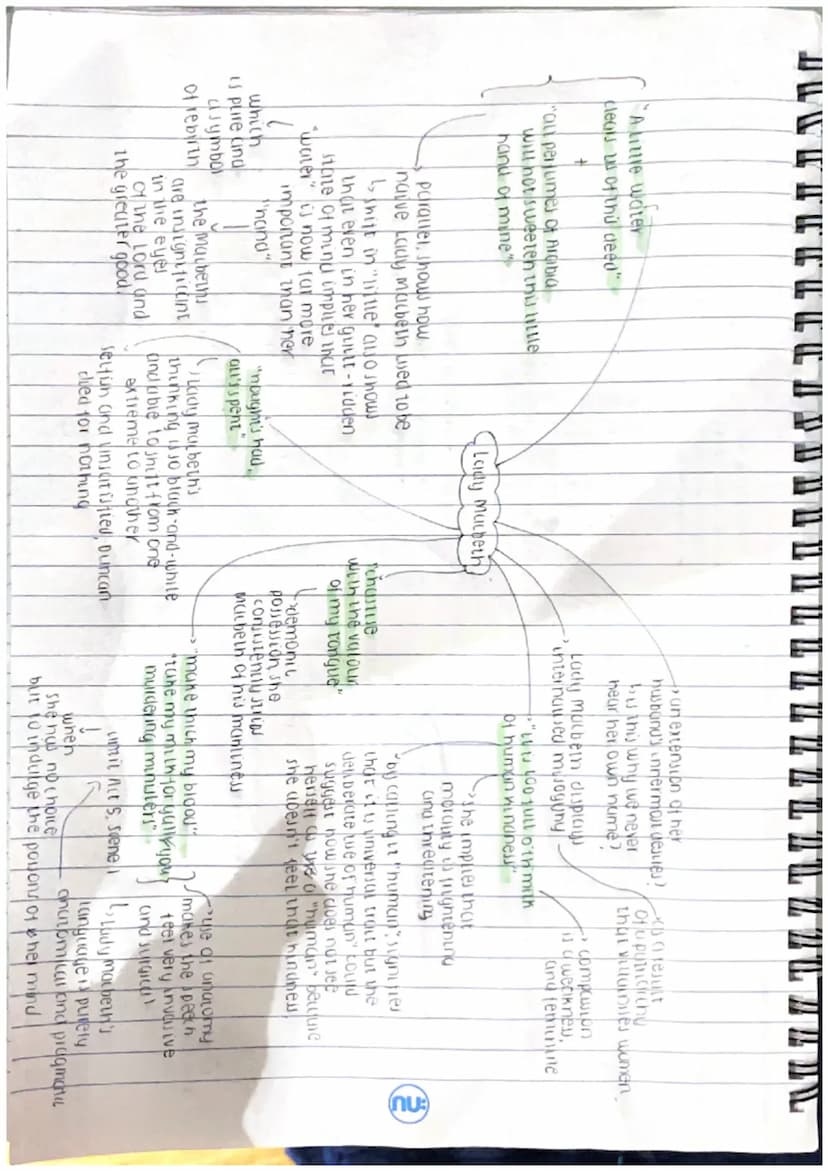 Lady Macbeth
"A little water
clears us of this deed"
+
"all perfumes of Arabia
will not sweeten this little
hand of mine"
parallel, shows how
naive Lady Macbeth used to be
↳ shift in "little" also shows
that even in her guilt-ridden
state of mind implies that
"water" is now far more
important than her
"hand"
which
is pure and
a symbol
of rebirth
the Macbeths
are insignificant
in the eyes
of the Lord and
the greater good
"nought's had,
all's spent"
↳ Lady Macbeth's
thinking is so black-and-white
and able to shift from one
extreme to another
selfish and unsatisfied, Duncan
died for nothing
"chastise
with the valour
of my tongue"
↳ demonic
possession, she
consistently strips
Macbeth of his manliness
"make thick my blood"
"take my milk for gall" "you
murdering ministers"
until Act 5, scene 1
when
she has no choice
but to indulge the poisons of her mind
use of anatomy
makes the speech
feel very invasive
and surgical
↳ Lady Macbeth's
language is purely
anatomical and pragmatic
an extension of her
husband's innermost desires?
↳ is this why we never
hear her own name?
Lady Macbeth displays
internalised misogyny
as a result
of a patriarchy
that villainises women
"is too full o'th milk
of human kindness"
compassion
is a weakness,
and feminine
↳ she implies that
morality is frightening
and threatening
by calling it "human", signifies
that it is universal trait but the
deliberate use of "human" could
suggest how she does not see
herself as the a "human" because
she doesn't feel that kindness